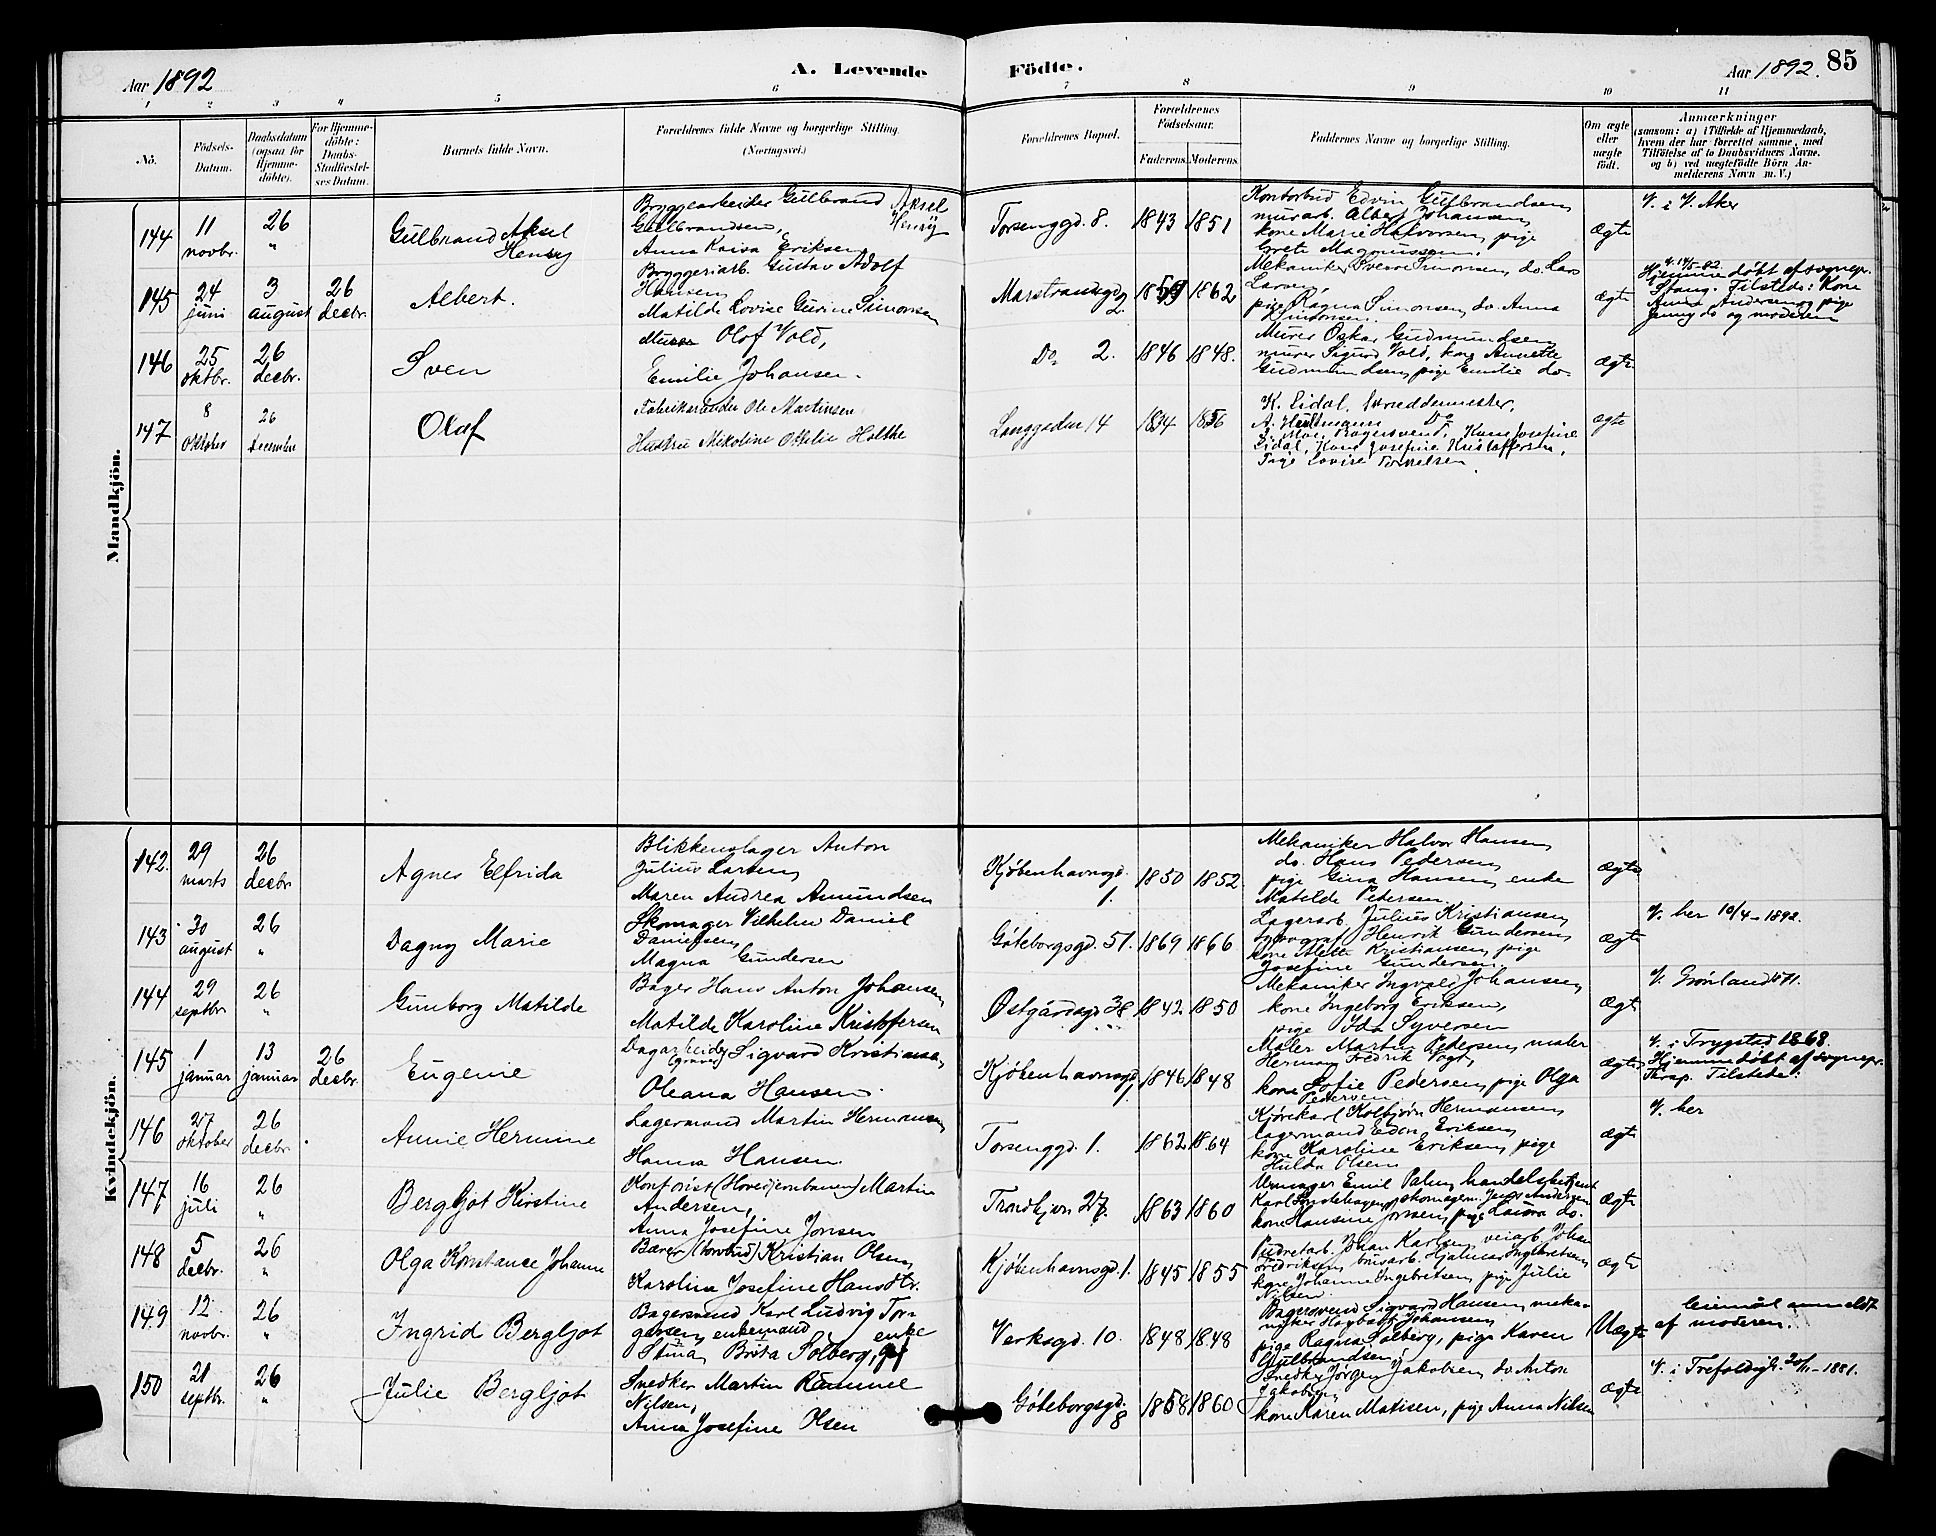 Aar 1892
A. Levende Födte.
Aar 1892. 85
1 2 3 4 5 6 7 8 9 10 11
No.
Födsels-Datum.
Daabsdatum (ogsaa for Hjemme-döbte).
For Hjemme-döbte: Daabs-Stadfæstel-ses Datum.
Barnets fulde Navn.
Forældrenes fulde Navne og borgerlige Stilling. (Næringsvei.)
Forældrenes Bopæl.
Forældrenes Födselsaar.
Faderens. Moderens.
Faddernes Navne og borgerlige Stilling.
Om ægte eller uægte födt.
Anmærkninger (saasom: a) i Tilfælde af Hjemmedaab, hvem der har forrettet samme, med Tilföielse af to Daabsvidners Navne, og b) ved uægtefödte Börn An-melderens Navn m. V.)
Mandkjön.
144
11 novbr.
26 "
Gulbrand Aksel
Henry
Bryggearbeider Gulbrand Aksel
Gulbrandsen, Henry
Anna Kaisa Eriksen
Torsenggd. 8.
1843 1851
Kontorbud Edvin Gulbrandsen,
murarb. Albert Johansen,
kone Marie Halvorsen, pige
Grete Magnussen.
ægte
V. i V. Aker
145
24 juni
3 august
26 decbr.
Albert.
Bryggeriarb. Gustav Adolf
Hansen
Matilde Lovise Gurine Simonsen
Marstrandgd. 2
1859 1862
Mekaniker Sverre Simonsen, do. Lars
Larsen,
pige Ragna Simonsen, do. Anna
Simonsen.
ægte
Hjemmedøbt af sognepr.
Stang. Tilstede: Kone
Anna Andersen og pige
Jenny do og moderen
146
25 oktbr.
26 decbr.
Sven
Murer Olof Vold,
Emilie Johansen.
Do 2.
1846 1848.
Murer Oskar Gudmundsen,
murer Sigurd Vold, kone Annette
Gudmundsen, pige Emilie do.
ægte
147
8 Oktober
26 December
Olaf
Fabrikarbeider Ole Martinsen
Hustru Nikoline Otilie Holthe
Langgaden 14
1854 1856
K. Lidal, Skræddermester,
A. Do
Bagersvend, Kone Josefine
Lidal, Kone Josefine Kristoffersen,
Pige Lovise
ægte
Kvindekjön.
142.
29 marts
26 decbr
Agnes Elfrida
Blikkenslager Anton
Julius Larsen,
Maren Andrea Amundsen
Kjøbenhavnsgd. 1.
1850 1852
Mekaniker Halvor Hansen,
do. Hans Pedersen,
pige Gina Hansen, enke
Matilde Pedersen
ægte
143
30 august
26 "
Dagny Marie
Skomager Vilhelm Daniel
Danielsen,
Magna Gundersen
Göteborgsgd. 51.
1869 1866
Lagerarb. Julius Kristiansen,
typograf Henrik Gundersen,
kone Alette Kristiansen, pige
Josefine Gundersen.
ægte
V. her 10/4 - 1892.
144
29 septbr
26 "
Gunborg Matilde
Bager Hans Anton Johansen,
Matilde Karoline Kristofersen
Østgårdsgd 38
1842 1850
Mekaniker Ingvald Johansen,
kone Ingeborg Eriksen,
pige Ida Syversen
ægte
V. Grønland 1871.
145
1 januar
13 januar
26 decbr.
Eugenie
Dagarbeider (graver) Sigvard Kristiansen
Oleana Hansen
Kjøbenhavnsgd. 1
1846 1848
Maler Martin Pedersen, maler
Herman Fredrik Vogt,
kone Sofie Pedersen, pige Olga
Pedersen
ægte
V. i Trygstad 1868.
Hjemmedøbt af sognepr.
Thrap. Tilstede:
146
27 oktober
26 decbr.
Annie Hermine
Lagermand Martin Hermansen,
Hanna Hansen
Torsenggd. 1.
1862 1864
Kjørekarl Kolbjørn Hermansen,
lagermand Edon Eriksen,
kone Karoline Eriksen, pige
Hulda Olsen
ægte
V. her
147
16 juli
26 "
Bergljot Kirstine
Kontorist (Hovedjernbanen) Martin
Andersen,
Anna Josefine Jonsen
Trondhjem 27.
1863 1860
Urmager Emil Palm, handelsbetjent
Karl skomagerm. Jens Andersen
kone Hansine Jonsen, pige Laura do.
ægte
148
5 decbr.
26 "
Olga Konstance Johanne
Bærer (torvbud) Kristian Olsen,
Karoline Josefine Hansdtr.
Kjøbenhavnsgd. 1.
1845 1855
Pudretarb. Johan Karlsen, veiarb. Johan
Fredriksen, Hjalmar Ingebretsen,
kone Johanne Ingebretsen, pige Julie
Nilsen
ægte
149
12 novbr.
26 "
Ingrid Bergljot
Bagersvend Karl Ludvig Tor-
gersen, enkemand
Stina Brita Solberg, enke
Verksgd. 10.
1848 1848
Bagersvend Sigvard Hansen, meka-
niker Hagbart Johansen,
pige Ragna Solberg, pige Karen
Gulbrandsen
Uægte
anmeldt
af moderen.
150
21 septbr.
26 "
Julie Bergljot
Snedker Martin Rammel
Nilsen,
Anna Josefine Olsen
Göteborgsgd. 8
1858 1860
Snedker Jørgen Jakobsen, do Anton
Jakobsen,
kone Karen Matisen, pige Anna Nilsen
ægte
V. i Trefoldigh. 20/11 - 1881.